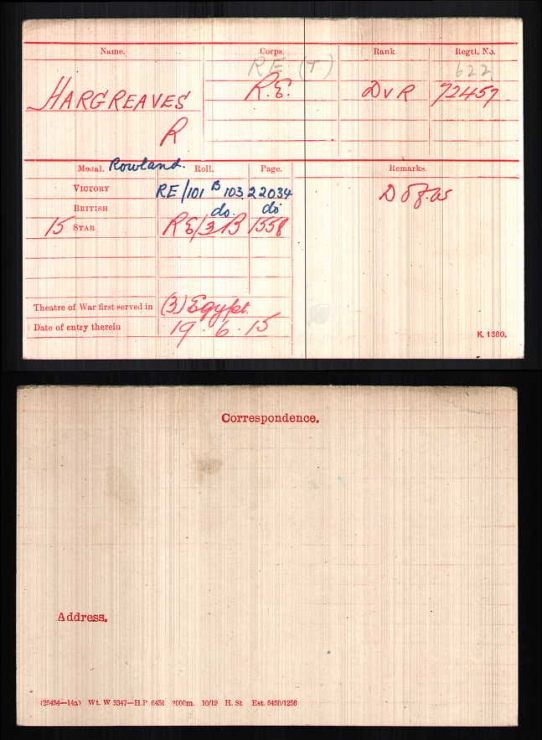 Name. Corps. Rank Regtl. No.
R.E. (T) 622
HARGREAVES R.E. DVR 72457
R
Medal. Rowland. Roll. Page. Remarks.
VICTORY RE/101 B 103 22034 D of
BRITISH do. do
15 STAR RE/3 B 1558
Theatre of War first served in (3) Egypt.
Date of entry therein 19.6.15
K. 1380.
Correspondence.
Address.
Wt. W 5347—H.P 10/19 H. St